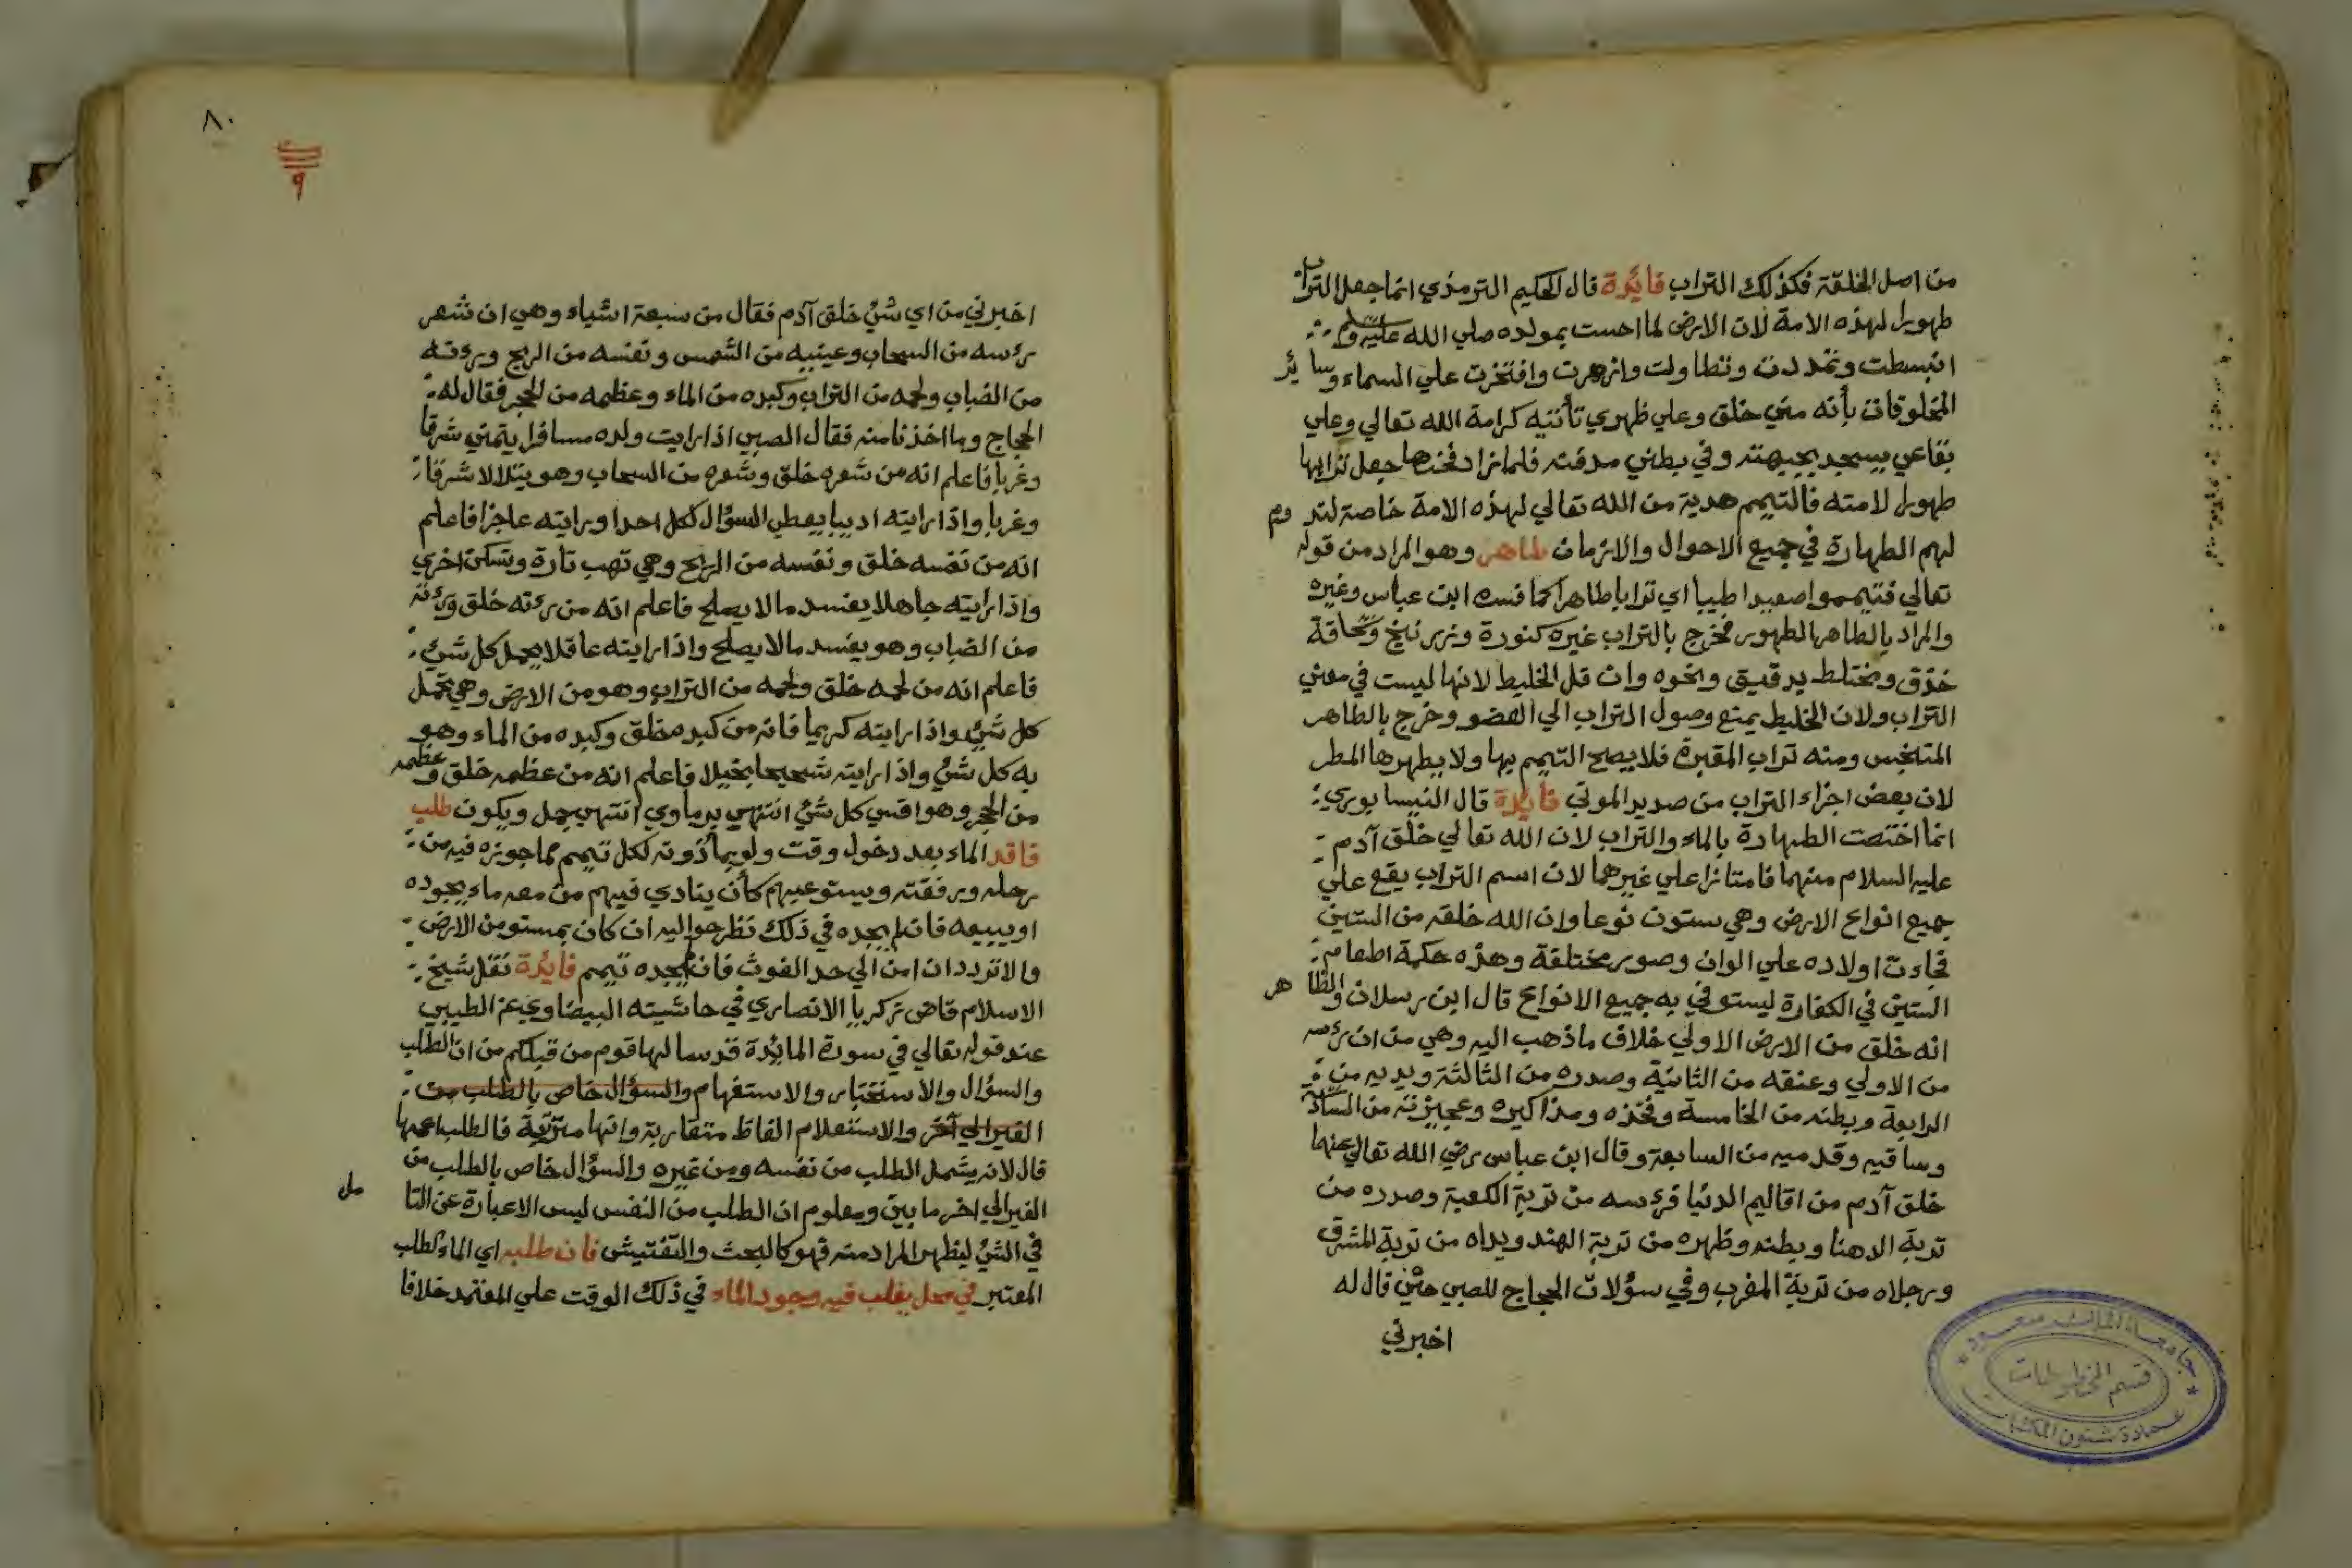 من اصل الخلقة فكذلك التراب فايدة قال الحكيم الترمذي انما جعل التراب
طهورا لهذه الامة لان الارض لما احست بمولده صلي الله عليه وسلم
انبسطت وتمددت وتطاولت وازهرت وافتخرت علي السماء وسايئر
المخلوقات بأنه مني خلق وعلي ظهري تأتيه كرامة الله تعالي وعلي
بقاعي يسجد بجبهته وفي بطني مدفنه فلما زاد فخرها جعل ترابها
طهورا لامته فالتيمم هدية من الله تعالي لهذه الامة خاصة لتدوم
لهم الطهارة في جميع الاحوال والازمان طاهر وهو المراد من قوله
تعالي فتيمموا صعيدا طيبا اي ترابا طاهرا كما فسره ابن عباس وغيره
والمراد بالطاهر الطهور فخرج بالتراب غيره كنورة وزرنيخ وسحاقة
خزف ومختلط بدقيق ونحوه وان قل الخليط لانها ليست في معني
التراب ولان الخليط يمنع وصول التراب الي العضو وخرج بالطاهر
المتنجس ومنه تراب المقبرة فلا يصح التيمم بها ولا يطهرها المطر
لان بعض اجزاء التراب من صديد الموتي فايدة قال النيسابوري
انما اختصت الطهارة بالماء والتراب لان الله تعالي خلق آدم
عليه السلام منهما فامتازا علي غيرهما لان اسم التراب يقع علي
جميع انواع الارض وهي ستون نوعا وان الله خلقه من الستين
فجاءت اولاده علي الوان وصور مختلفة وهذه حكمة اطعام
الستين في الكفارة ليستوفي به جميع الانواع قال ابن رسلان والظاهر
انه خلق من الارض الاولي خلاف ما ذهب اليه وهي من ان رئسه
من الاولي وعنقه من الثانية وصدره من الثالثة ويديه من
الرابعة وبطنه من الخامسة وفخذه ومذاكيره وعجيزته من السادسة
وساقيه وقدميه من السابعة وقال ابن عباس رضي الله تعالي عنهما
خلق آدم من اقاليم الدنيا فرئسه من تربة الكعبة وصدره من
تربة الدهنا وبطنه وظهره من تربة الهند ويداه من تربة المشرق
ورجلاه من تربة المغرب وفي سؤلات الحجاج للصبي حين قال له
اخبرني
جامعة الملك سعود
قسم المخطوطات
عمادة شئون المكتبات
٨٠
٩
اخبرني من اي شئ خلق آدم فقال من سبعة اشياء وهي ان شعر
رئسه من السحاب وعينيه من الشمس ونفسه من الريح ورئته
من الضباب ولحمه من التراب وكبده من الماء وعظمه من الحجر فقال له
الحجاج وما اخذنا منه فقال الصبي اذا رايت ولده مسافرا يتمني شرقا
وغربا فاعلم انه من شعره خلق وشعره من السحاب وهو يتلالا شرقا
وغربا واذا رايته اديبا يعطي السؤال لكل احدا ورايته عاجزا فاعلم
انه من نفسه خلق ونفسه من الريح وهي تهب تارة وتسكن اخري
واذا رايته جاهلا يفسد ما لا يصلح فاعلم انه من رئته خلق ورئته
من الضباب وهو يفسد ما لا يصلح واذا رايته عاقلا يحمل كل شئ
فاعلم انه من لحمه خلق ولحمه من التراب وهو من الارض وهي تحمل
كل شئ واذا رايته كريما فانه من كبده خلق وكبده من الماء وهو
به كل شئ واذا رايته شحيحا بخيلا فاعلم انه من عظمه خلق وعظمه
من الحجر وهو اقسي كل شئ انتهي برماوي انتهي جمل ويكون طلب
فاقد الماء بعد دخول وقت ولو بمأذونه لكل تيمم مما جوزه فيه من
رحله ورفقته ويستوعبهم كأن ينادي فيهم من معه ماء يجوده
او يبيعه فان لم يجده في ذلك نظر حواليه ان كان بمستو من الارض
والا تردد ان امن الي حد الغوث فان لم يجده تيمم فايدة نقل شيخ
الاسلام قاض زكريا الانصاري في حاشيته البيضاوي عن الطيبي
عند قوله تعالي في سورة المائدة قد سالها قوم من قبلكم من ان الطلب
والسؤال والاستخبار والاستفهام والسؤال خاص بالطلب من
الغير الي آخر والاستعلام الفاظ متقاربة وانها مترتبة فالطلب اعمها
قال لانه يشمل الطلب من نفسه ومن غيره والسؤال خاص بالطلب من
الغير الي اخر ما بين ومعلوم ان الطلب من النفس ليس الا عبارة عن التامل
في الشئ ليظهر المراد منه فهو كالبحث والتفتيش فان طلبه اي الماء الطلب
المعتبر في محل يغلب فيه وجود الماء في ذلك الوقت علي المعتمد خلافا